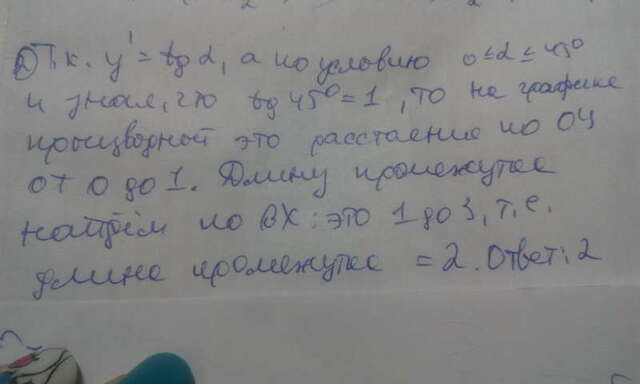 Т.к. y' = tg α, а по условию 0 ≤ α ≤ 45°
и зная, что tg 45° = 1, то на графике
производной это расстояние по ОУ
от 0 до 1. Длину промежутка
найдём по ОХ: это 1 до 3, т.е.
длина промежутка = 2. Ответ: 2